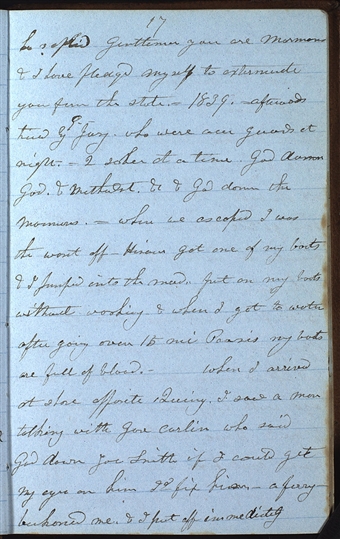 17
he replied Gentlemen you are Mormons
& I have pledgd myself to exterminate
you from the state. – 1839. – afterwards
tried Gd Jury. who were our guards at
night. – 2 sober at a time. God damn
God. & Methodist. &c & Gd damn the
Mormons. – when we escaped I was
the worst off Hiram got one of my boots
& I jumped into the mud. put on my boots
without working & when I got to water
after going over 16 mi Parais my boots
are full of blood. – when I arrived
at shore opposite Quincy. I saw a man
talking with Gov carlin who said
God damn Joe Smith if I could get
my eyes on him I'd fix him. – a ferry
beckoned me. & I put off immediately